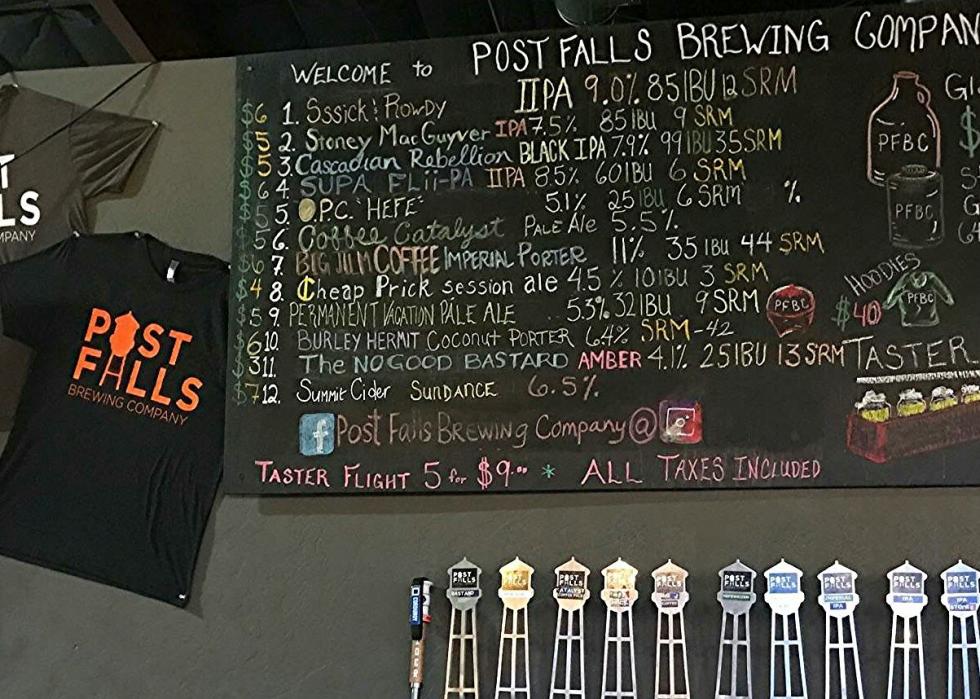 WELCOME to POST FALLS BREWING COMPAN
$6 1. Sssick! Rowdy IIPA 9.0% 85 IBU 12 SRM
$5 2. Stoney MacGuyver IPA 7.5% 85 IBU 9 SRM
$5 3. Cascadian Rebellion BLACK IPA 7.9% 99 IBU 35 SRM
$6 4. SUPA FLii-PA IIPA 8.5% 60 IBU 6 SRM
$5 5. P.C. "HEFE" 5.1% 25 IBU 6 SRM %
$5 6. Coffee Catalyst PALE Ale 5.5%
$6 7. BIG JIM COFFEE IMPERIAL PORTER 11% 35 IBU 44 SRM
$4 8. Cheap Prick session ale 4.5% 10 IBU 3 SRM
$5 9. PERMANENT VACATION PALE ALE 5.3% 32 IBU 9 SRM
$6 10. BURLEY HERMIT Coconut PORTER 6.4% SRM-42
$3 11. The NO GOOD BASTARD AMBER 4.1% 25 IBU 13 SRM
$7 12. Summit Cider SUNDANCE 6.5%
f Post Falls BREWING Company @
TASTER FLIGHT 5 for $9.00 * ALL TAXES INCLUDED
PFBC
PFBC
PFBC
HOODIES
$40
PFBC
TASTER
LS
MPANY
POST
FALLS
BREWING COMPANY
POST FALLS
BASTARD
POST FALLS
POST FALLS
CATALYST
POST FALLS
POST FALLS
COFFEE
POST FALLS
POST FALLS
POST FALLS
IMPERIAL
IPA
POST FALLS
IPA
POST FALLS
IPA